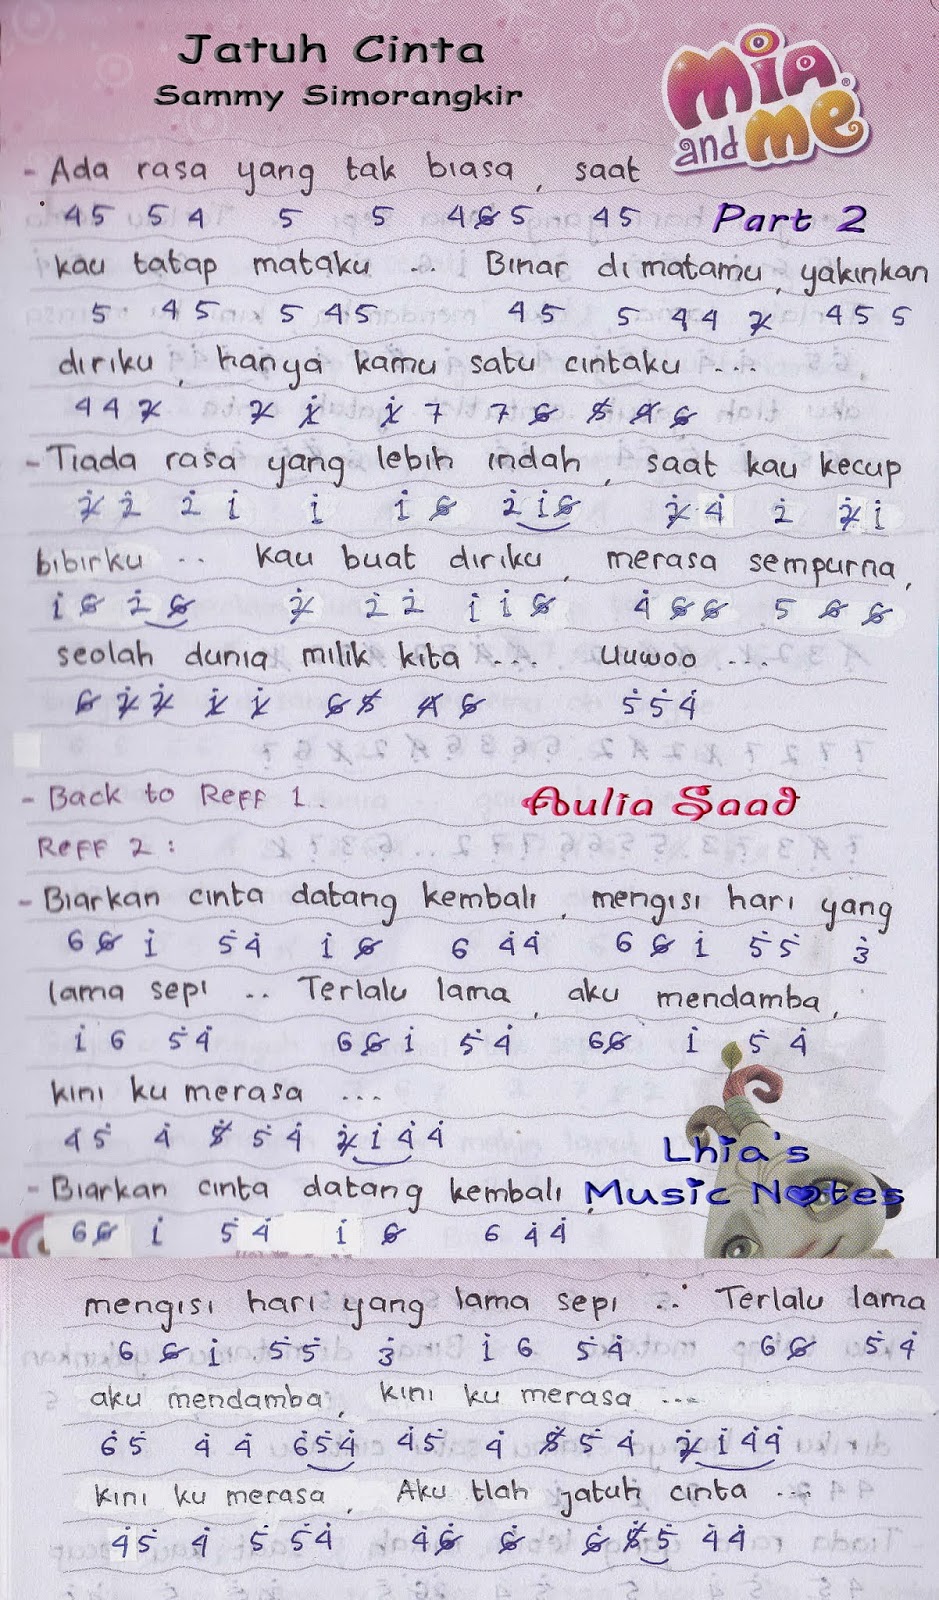 Jatuh Cinta
Sammy Simorangkir
Mia and me
- Ada rasa yang tak biasa, saat
4 5 5 4 5 5 4 6̸ 5 4 5 Part 2
kau tatap mataku ... Binar di matamu, yakinkan
5 4 5 5 4 5 4 5 5 4 4 2̸ 4 5 5
diriku, hanya kamu satu cintaku ....
4 4 2̸ 2̸ 1̸̇ 1̸̇ 7 7 6̸ 5̸ 4̸ 6̸
- Tiada rasa yang lebih indah, saat kau kecup
2̸̇ 2̇ 2̇ 1̇ 1̇ 1̇ 6̸ 2̇ 1̇ 6̸ 2̸̇ 4̇ 2̇ 2̸̇ 1̇
bibirku .. kau buat diriku, merasa sempurna,
1̇ 6̸ 2̇ 6̸ 2̸̇ 2̇ 2̇ 1̇ 1̇ 6̸ 4̇ 6̸ 6̸ 5 6̸ 6̸
seolah dunia milik kita .... Uuwoo ...
6̸ 2̸̇ 2̸̇ 1̸̇ 1̸̇ 6̸ 5̸ 4̸ 6̸ 5̇ 5̇ 4̇
- Back to Reff 1 Aulia Saad
Reff 2 :
- Biarkan cinta datang kembali, mengisi hari yang
6 6̸ 1̇ 5̇ 4̇ 1̇ 6̸ 6 4̇ 4̇ 6 6̸ 1̇ 5̇ 5̇ 3̇
lama sepi .. Terlalu lama, aku mendamba,
1̇ 6 5̇ 4̇ 6 6̸ 1̇ 5̇ 4̇ 6 6̸ 1̇ 5̇ 4̇
kini ku merasa ...
4̇ 5̇ 4̇ 5̸̇ 5̇ 4̇ 2̸̇ 1̇ 4̇ 4̇
Lhia's
- Biarkan cinta datang kembali, Music Notes
6 6̸ 1̇ 5̇ 4̇ 1̇ 6̸ 6 4̇ 4̇
mengisi hari yang lama sepi ... Terlalu lama
6 6̸ 1̇ 5̇ 5̇ 3̇ 1̇ 6 5̇ 4̇ 6 6̸ 5̇ 4̇
aku mendamba, kini ku merasa ....
6̇ 5̇ 4̇ 4̇ 6̇ 5̇ 4̇ 4̇ 5̇ 4̇ 5̸̇ 5̇ 4̇ 2̸̇ 1̇ 4̇ 4̇
kini ku merasa, Aku tlah jatuh cinta ...
4̇ 5̇ 4̇ 5̇ 5̇ 4̇ 4̇ 6̸̇ 6̸̇ 6̸̇ 5̸̇ 5̇ 4̇ 4̇